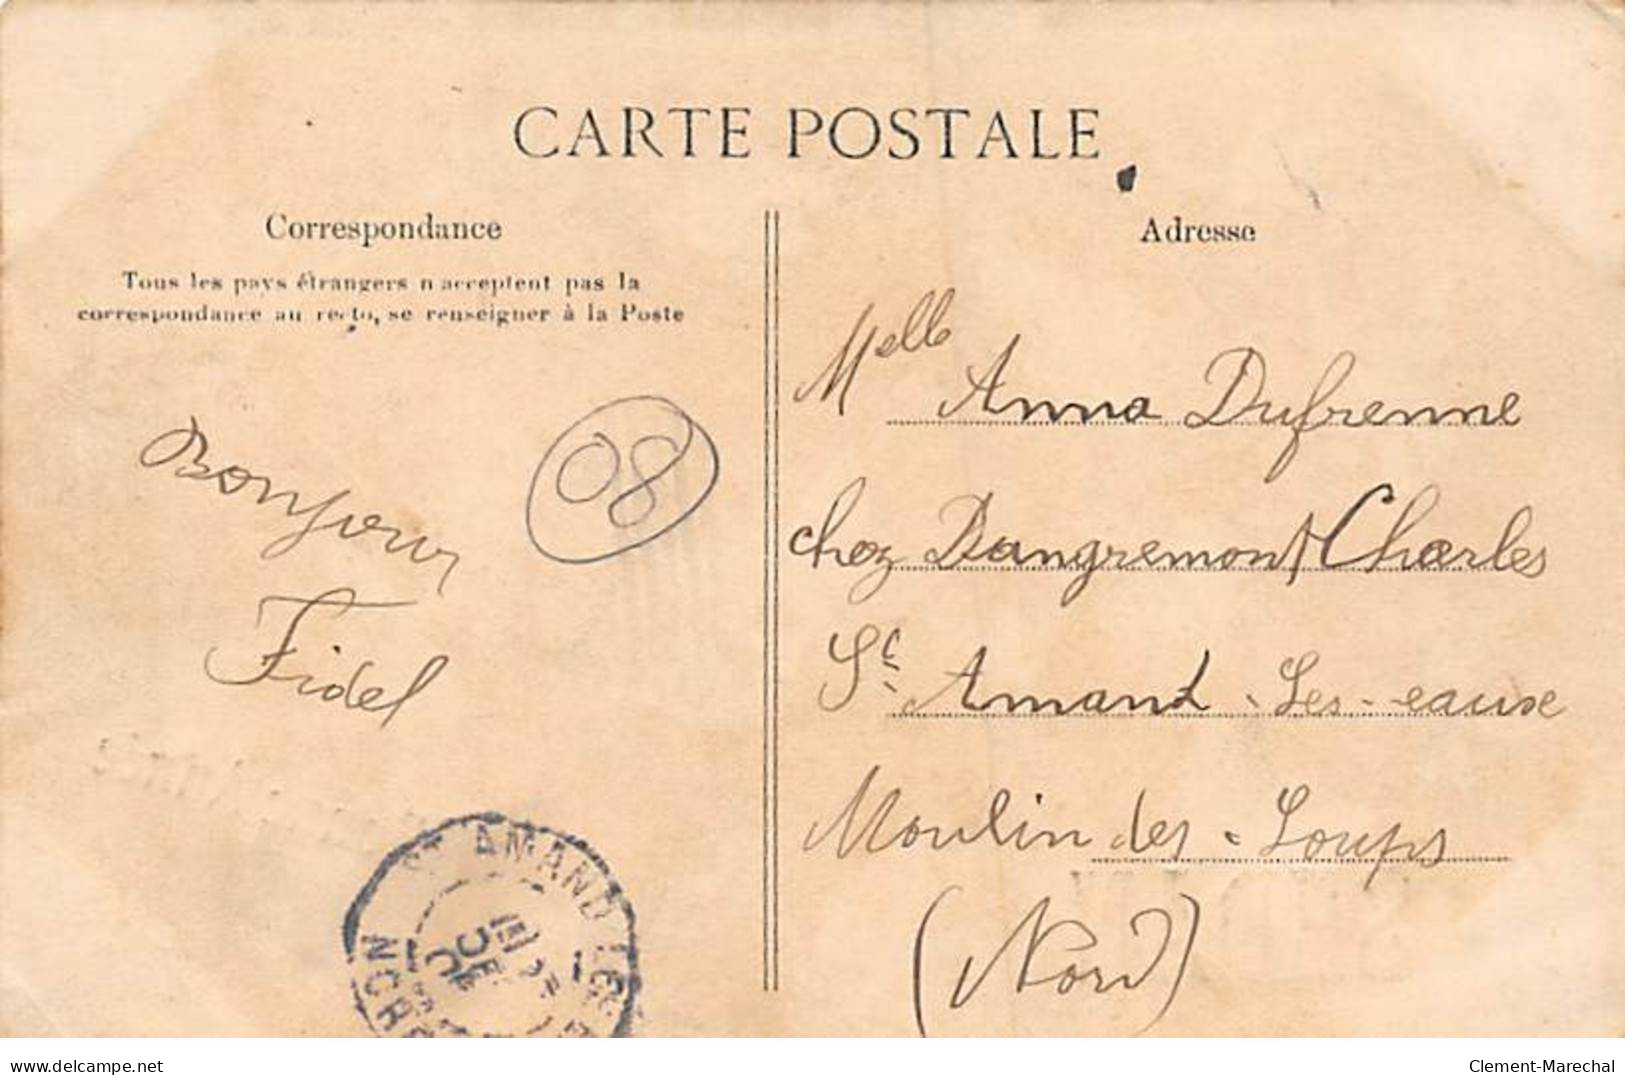 CARTE POSTALE
Correspondance
Tous les pays étrangers n'acceptent pas la
correspondance au recto, se renseigner à la Poste
Bonjour
08
Fidel
Adresse
Melle Anna Dufrenne
chez Dangremont Charles
St Amand - Les - eause
Moulin des - Loups
(Nord)
ST AMAND LES
NORD
delcampe.net
Clement-Marechal